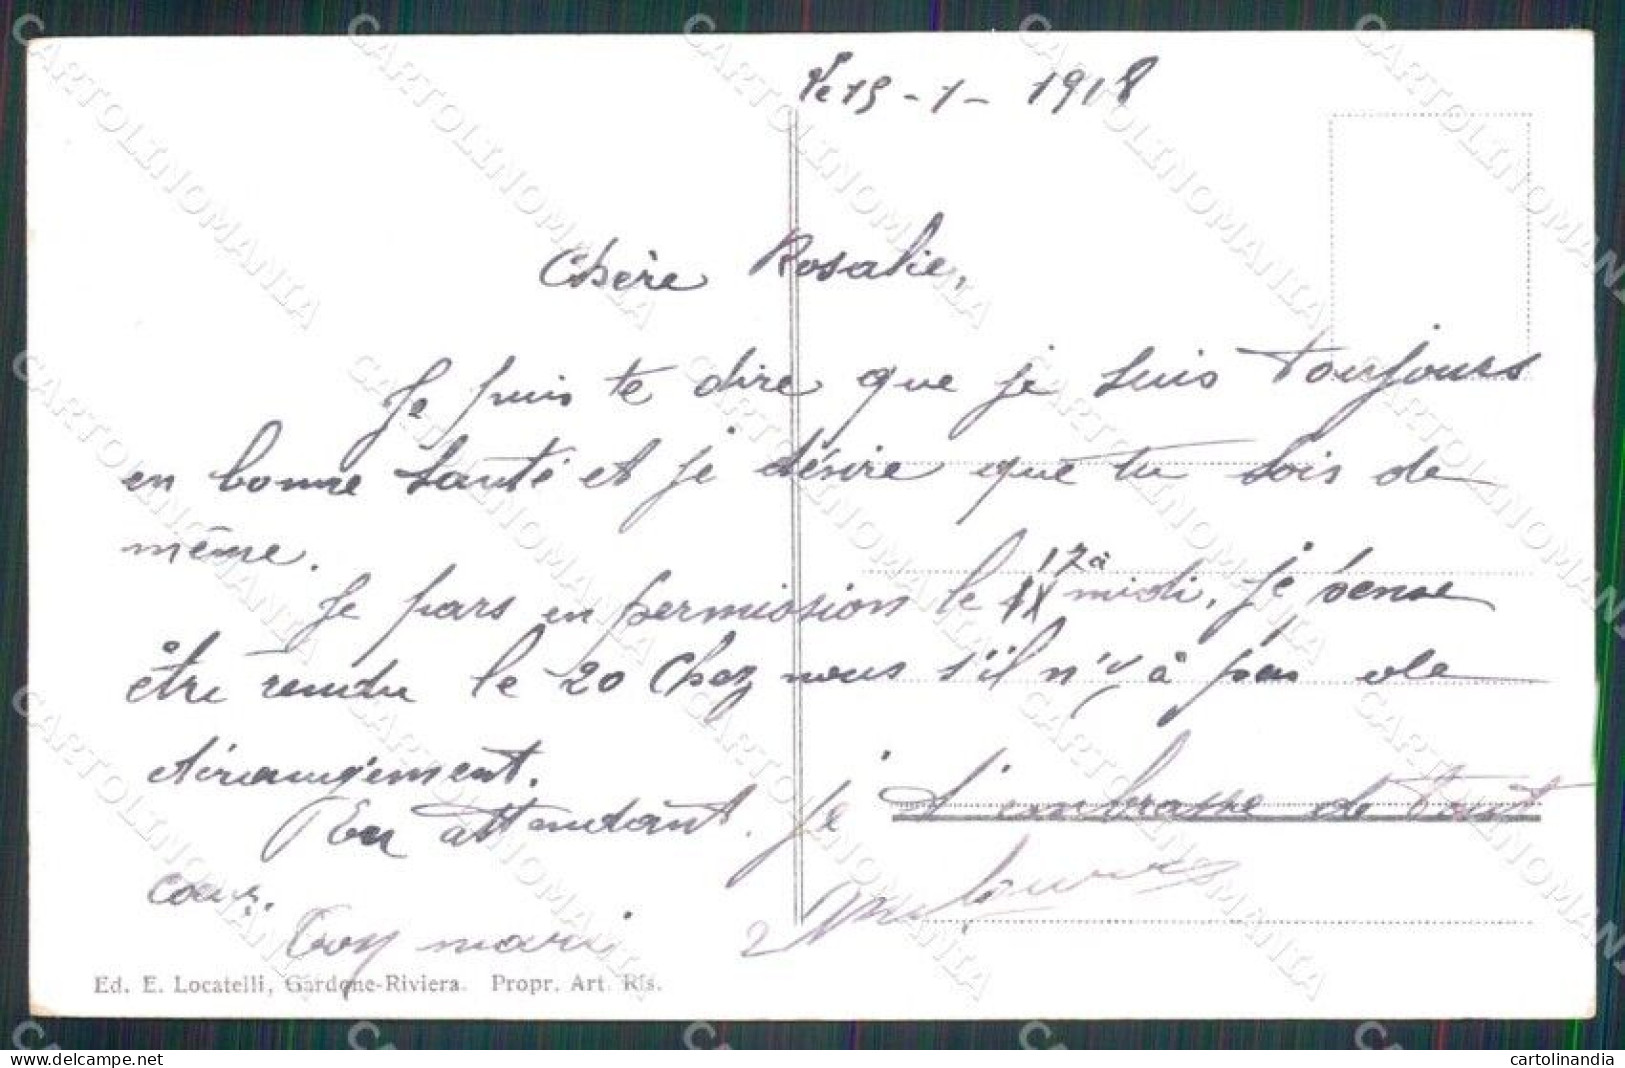 le 15-1-1918
Chère Rosalie,
Je puis te dire que je suis toujours
en bonne santé et je désire que tu sois de
même.
Je pars en permission le 17 à midi, je pense
être rendu le 20 chez nous s'il n'y à pas de
dérangement.
En attendant. Je t'embrasse de tout
cœur.
Ton mari
Ed. E. Locatelli, Gardone-Riviera. Propr. Art. Ris.
CARTOLINOMANIA
cartolinandia